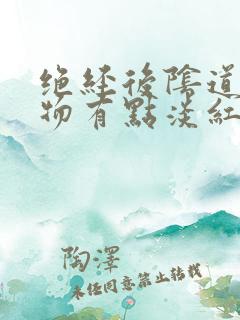 绝經後陰道
物有點淡紅
陶澤
未经同意禁止转载